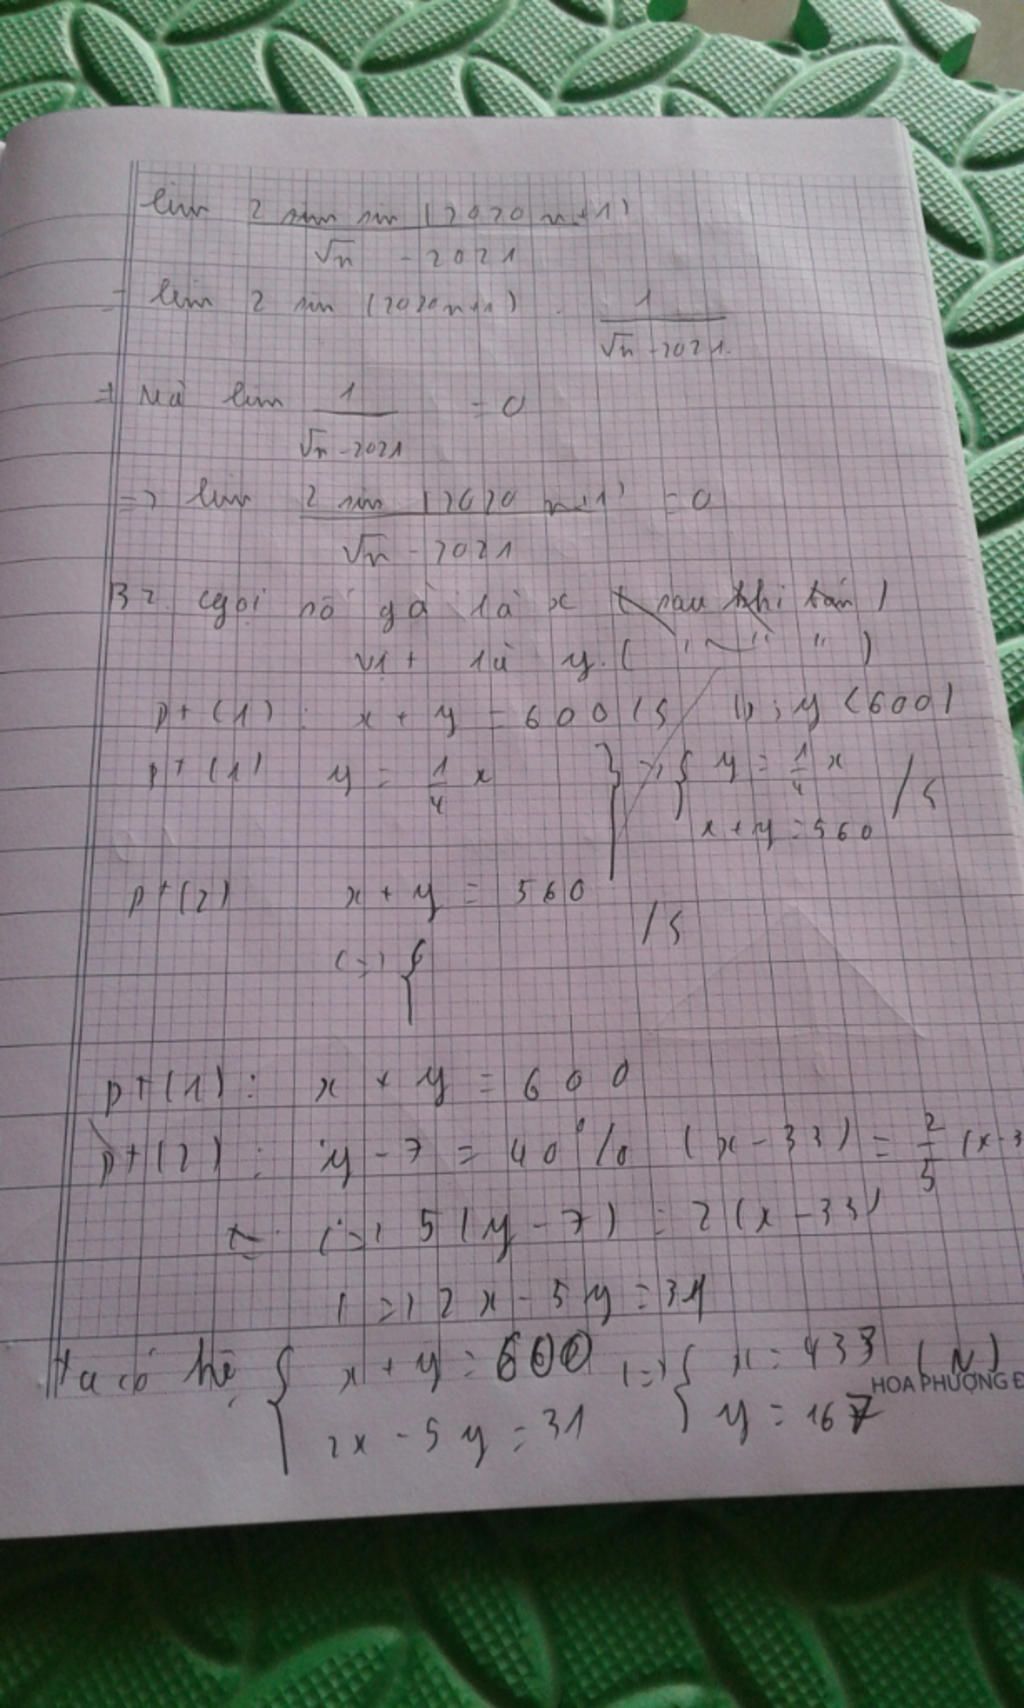 lim 2 sin (2020n+1)
√n - 2021
= lim 2 sin (2020n+1) . 1
√n - 2021
Mà lim 1 = 0
√n - 2021
=> lim 2 sin (2020n+1) = 0
√n - 2021
B2. Gọi số gà là x (sau khi bán)
vịt là y. ( " ~ " " )
pt (1) : x + y = 600 ; y < 600
pt (1) y = 1/4 x } => { y = 1/4 x
x + y = 560
pt (2) x + y = 560
<=> {
pt (1) : x + y = 600
pt (2) : y - 7 = 40% (x - 33) = 2/5 (x - 3
<=> 5 (y - 7) = 2 (x - 33)
<=> 2x - 5y = 31
ta có hệ { x + y = 600 <=> { x = 433 (N)
HOA PHƯỢNG Đ
2x - 5y = 31 y = 167